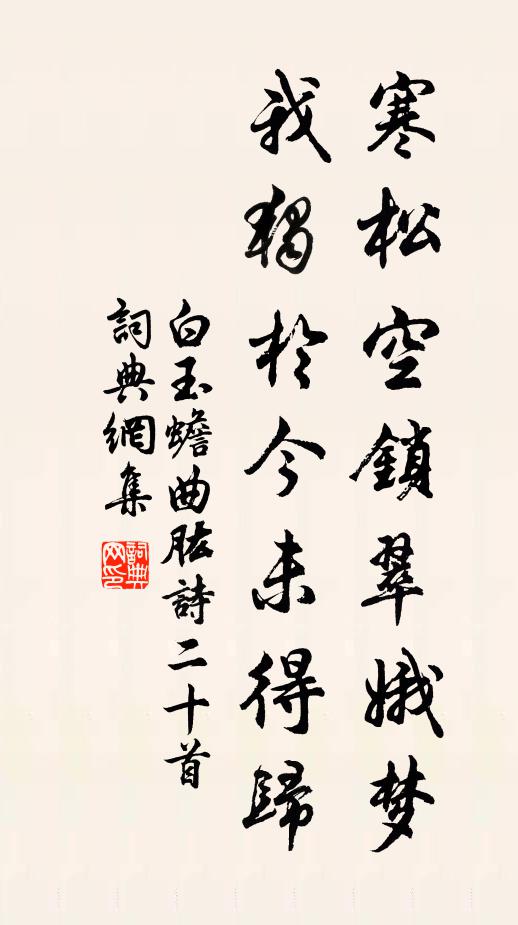 寒松空鎖翠娥梦
我獨於今未得歸
白玉蟾曲肱詩二十首
詞典網集
詞典网印